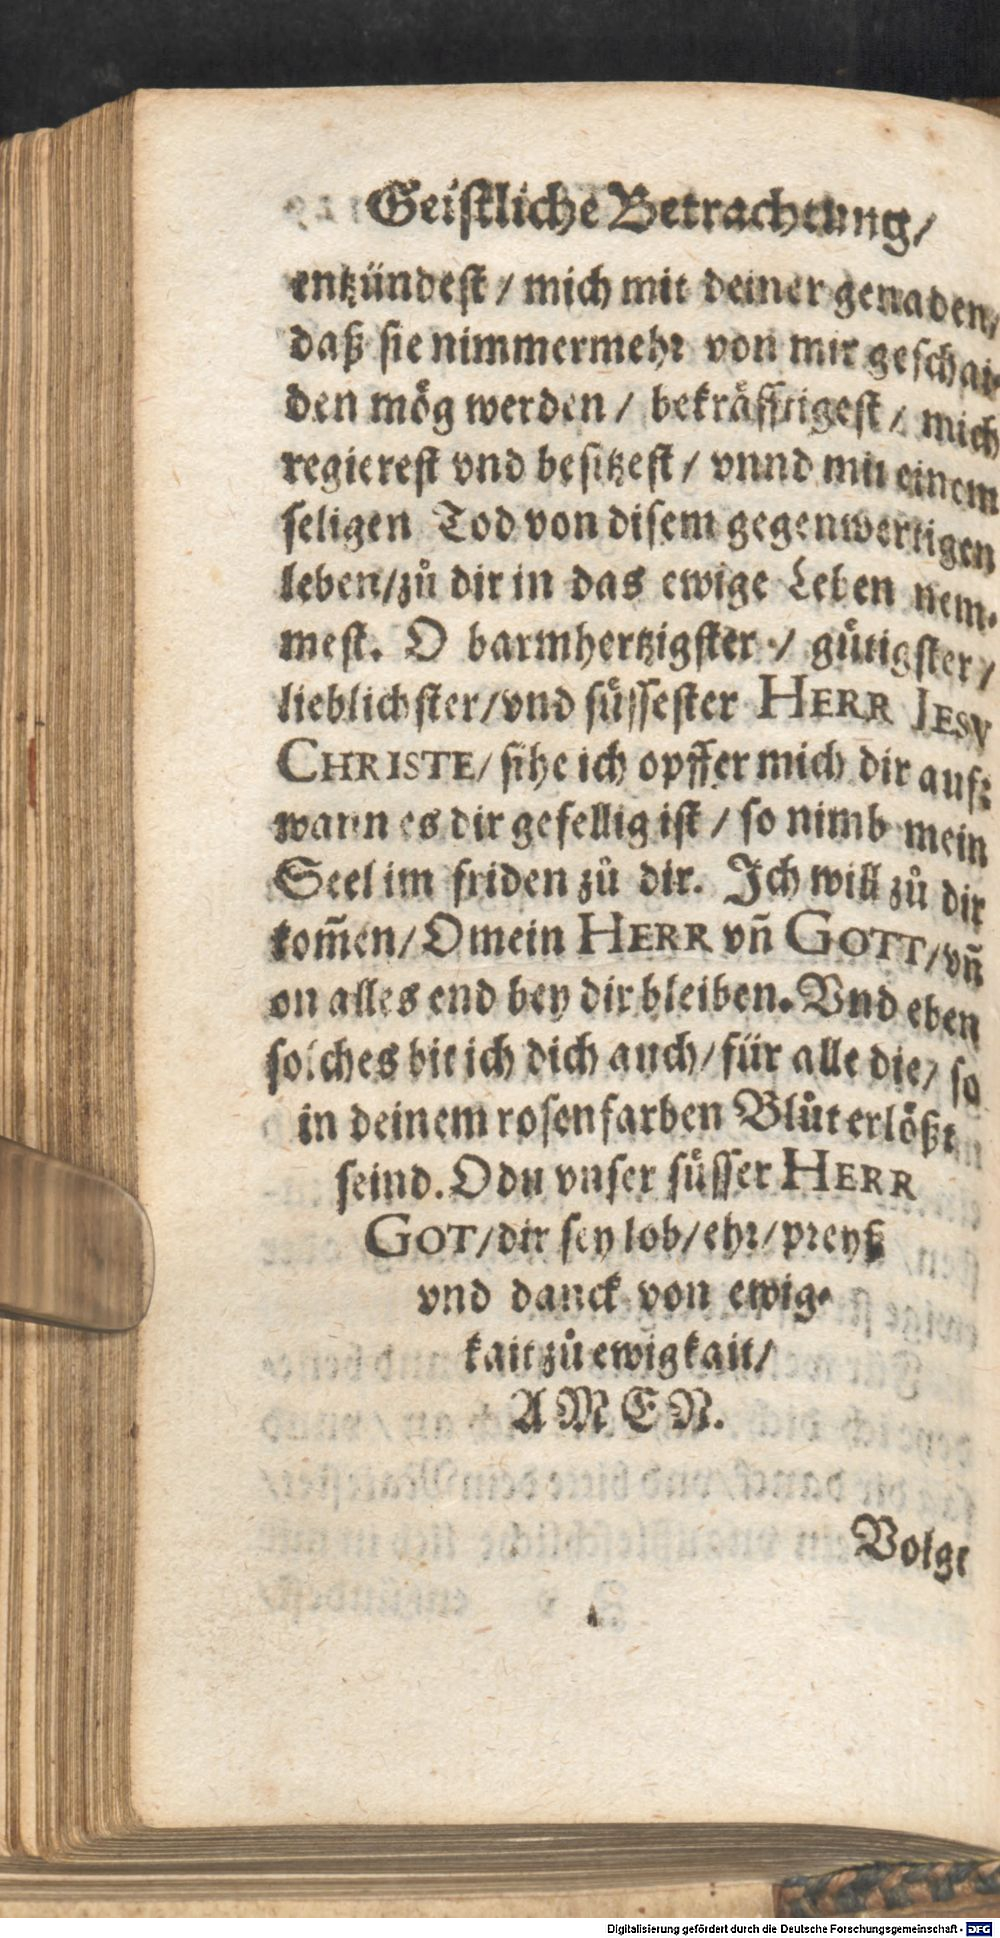 Geistliche Betrachtung/
entzündest / mich mit deiner genaden/
daß sie nimmermehr von mir geschai-
den mög werden / bekräfftigest / mich
regierest vnd besitzest / vnnd mit einem
seligen Tod von disem gegenwertigen
leben/zů dir in das ewige Leben nem-
mest. O barmhertzigster / gůtigster /
lieblichster/vnd sůssester HERR JESV
CHRISTE/ sihe ich opffer mich dir auf:
wann es dir gefellig ist / so nimb mein
Seel im friden zů dir. Ich will zů dir
kom̃en/ O mein HERR vñ GOTT/vñ
on alles end bey dir bleiben. Vnd eben
solches bit ich dich auch/ für alle die/ so
in deinem rosenfarben Blůt erlößt
seind. O du vnser sůsser HERR
GOT/dir sey lob/ehr/preyß
vnd danck von ewig-
kait zů ewigkait/
AMEN.
Volgt
Digitalisierung gefördert durch die Deutsche Forschungsgemeinschaft - DFG